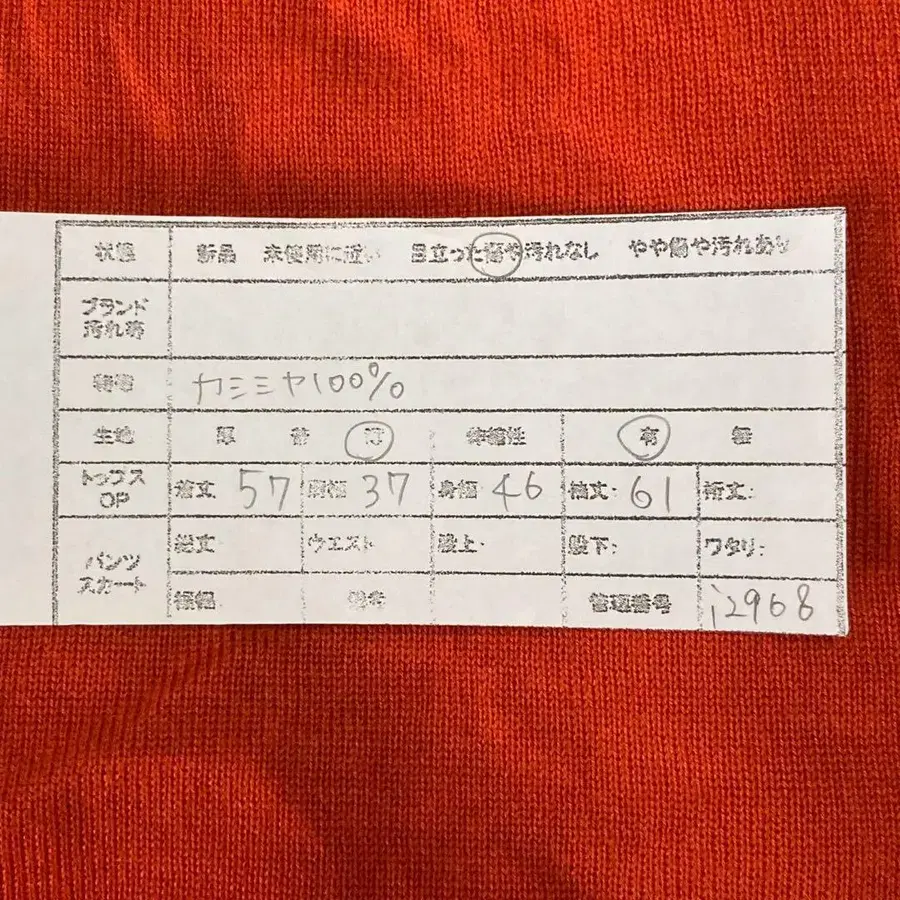 状態 新品 未使用に近い 目立った傷や汚れなし やや傷や汚れあり
ブランド
汚れ等
特徴 カシミヤ100%
生地 厚 普 薄 伸縮性 有 無
トップス OP 着丈 57 肩幅 37 身幅 46 袖丈: 61 裄丈:
パンツ スカート 総丈 ウエスト 股上: 股下: ワタリ:
裾幅 備考 管理番号 i2968